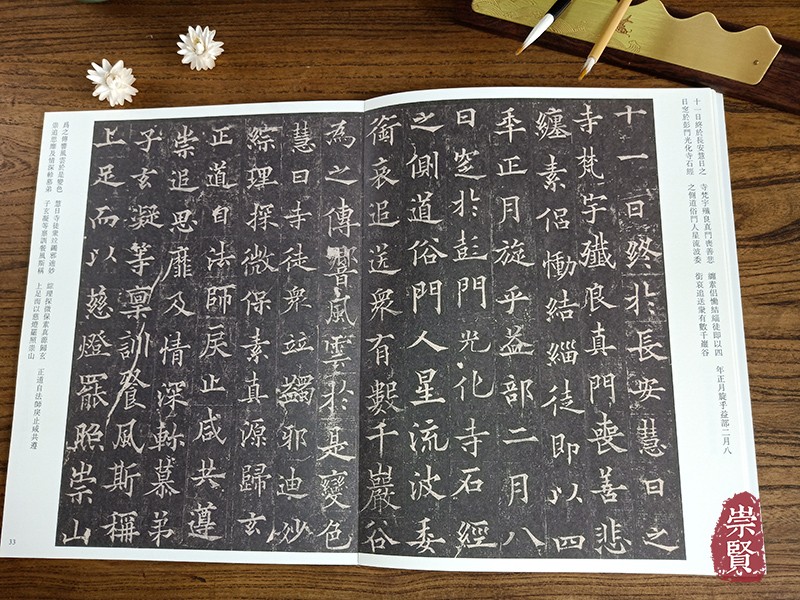 十一日終於長安慧日之
寺梵宇殲良真門喪善悲
纏素侶慟結緇徒即以四
年正月旋乎益部二月八
日窆於彭門光化寺石經
之側道俗門人星流波委
銜哀追送衆有數千巖谷
十一日終於長安慧日之
寺梵宇殲良真門喪善悲
纏素侶慟結緇徒即以四
年正月旋乎益部二月八
日窆於彭門光化寺石經
之側道俗門人星流波委
銜哀追送衆有數千巖谷
為之傳響風雲於是變色
慧日寺徒衆並蠲邪迪妙
綜理探微保素真源歸玄
正道自法師戾止咸共遵
崇追思靡及情深軫慕弟
子玄凝等稟訓餐風斯稱
上足而以慈燈罷照崇山
為之傳響風雲於是變色
慧日寺徒衆並蠲邪迪妙
綜理探微保素真源歸玄
正道自法師戾止咸共遵
崇追思靡及情深軫慕弟
子玄凝等稟訓餐風斯稱
上足而以慈燈罷照崇山
33
崇賢